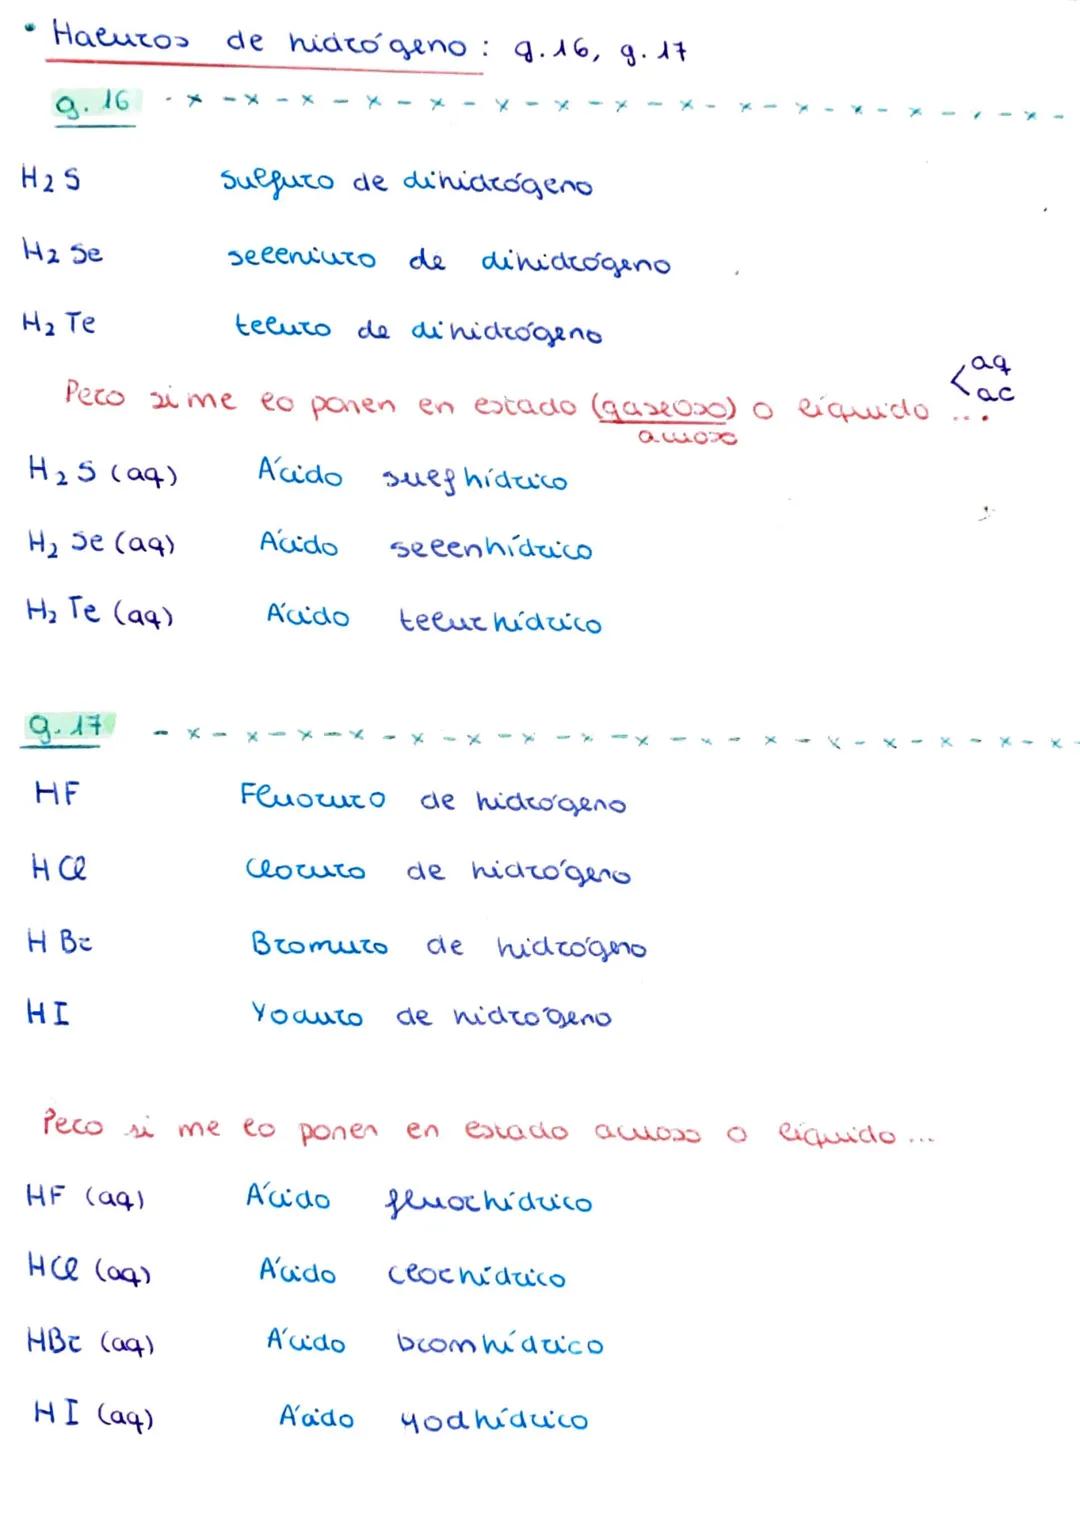 • Haluros de hidrógeno: g.16, g.17
g. 16
H2S sulfuro de dihidrógeno
H2Se seleniuro de dihidrógeno
H2Te teluro de dihidrógeno
aq
Pero si me lo ponen en estado (gaseoso) o líquido ...
ac
acuoso
H2S (aq) Ácido sulfhídrico
H2Se (aq) Ácido selenhídrico
H2Te (aq) Ácido telurhídrico
g. 17
HF Fluoruro de hidrógeno
HCl Cloruro de hidrógeno
HBr Bromuro de hidrógeno
HI Yoduro de hidrógeno
Pero si me lo ponen en estado acuoso o líquido ...
HF (aq) Ácido fluorhídrico
HCl (aq) Ácido clorhídrico
HBr (aq) Ácido bromhídrico
HI (aq) Ácido yodhídrico